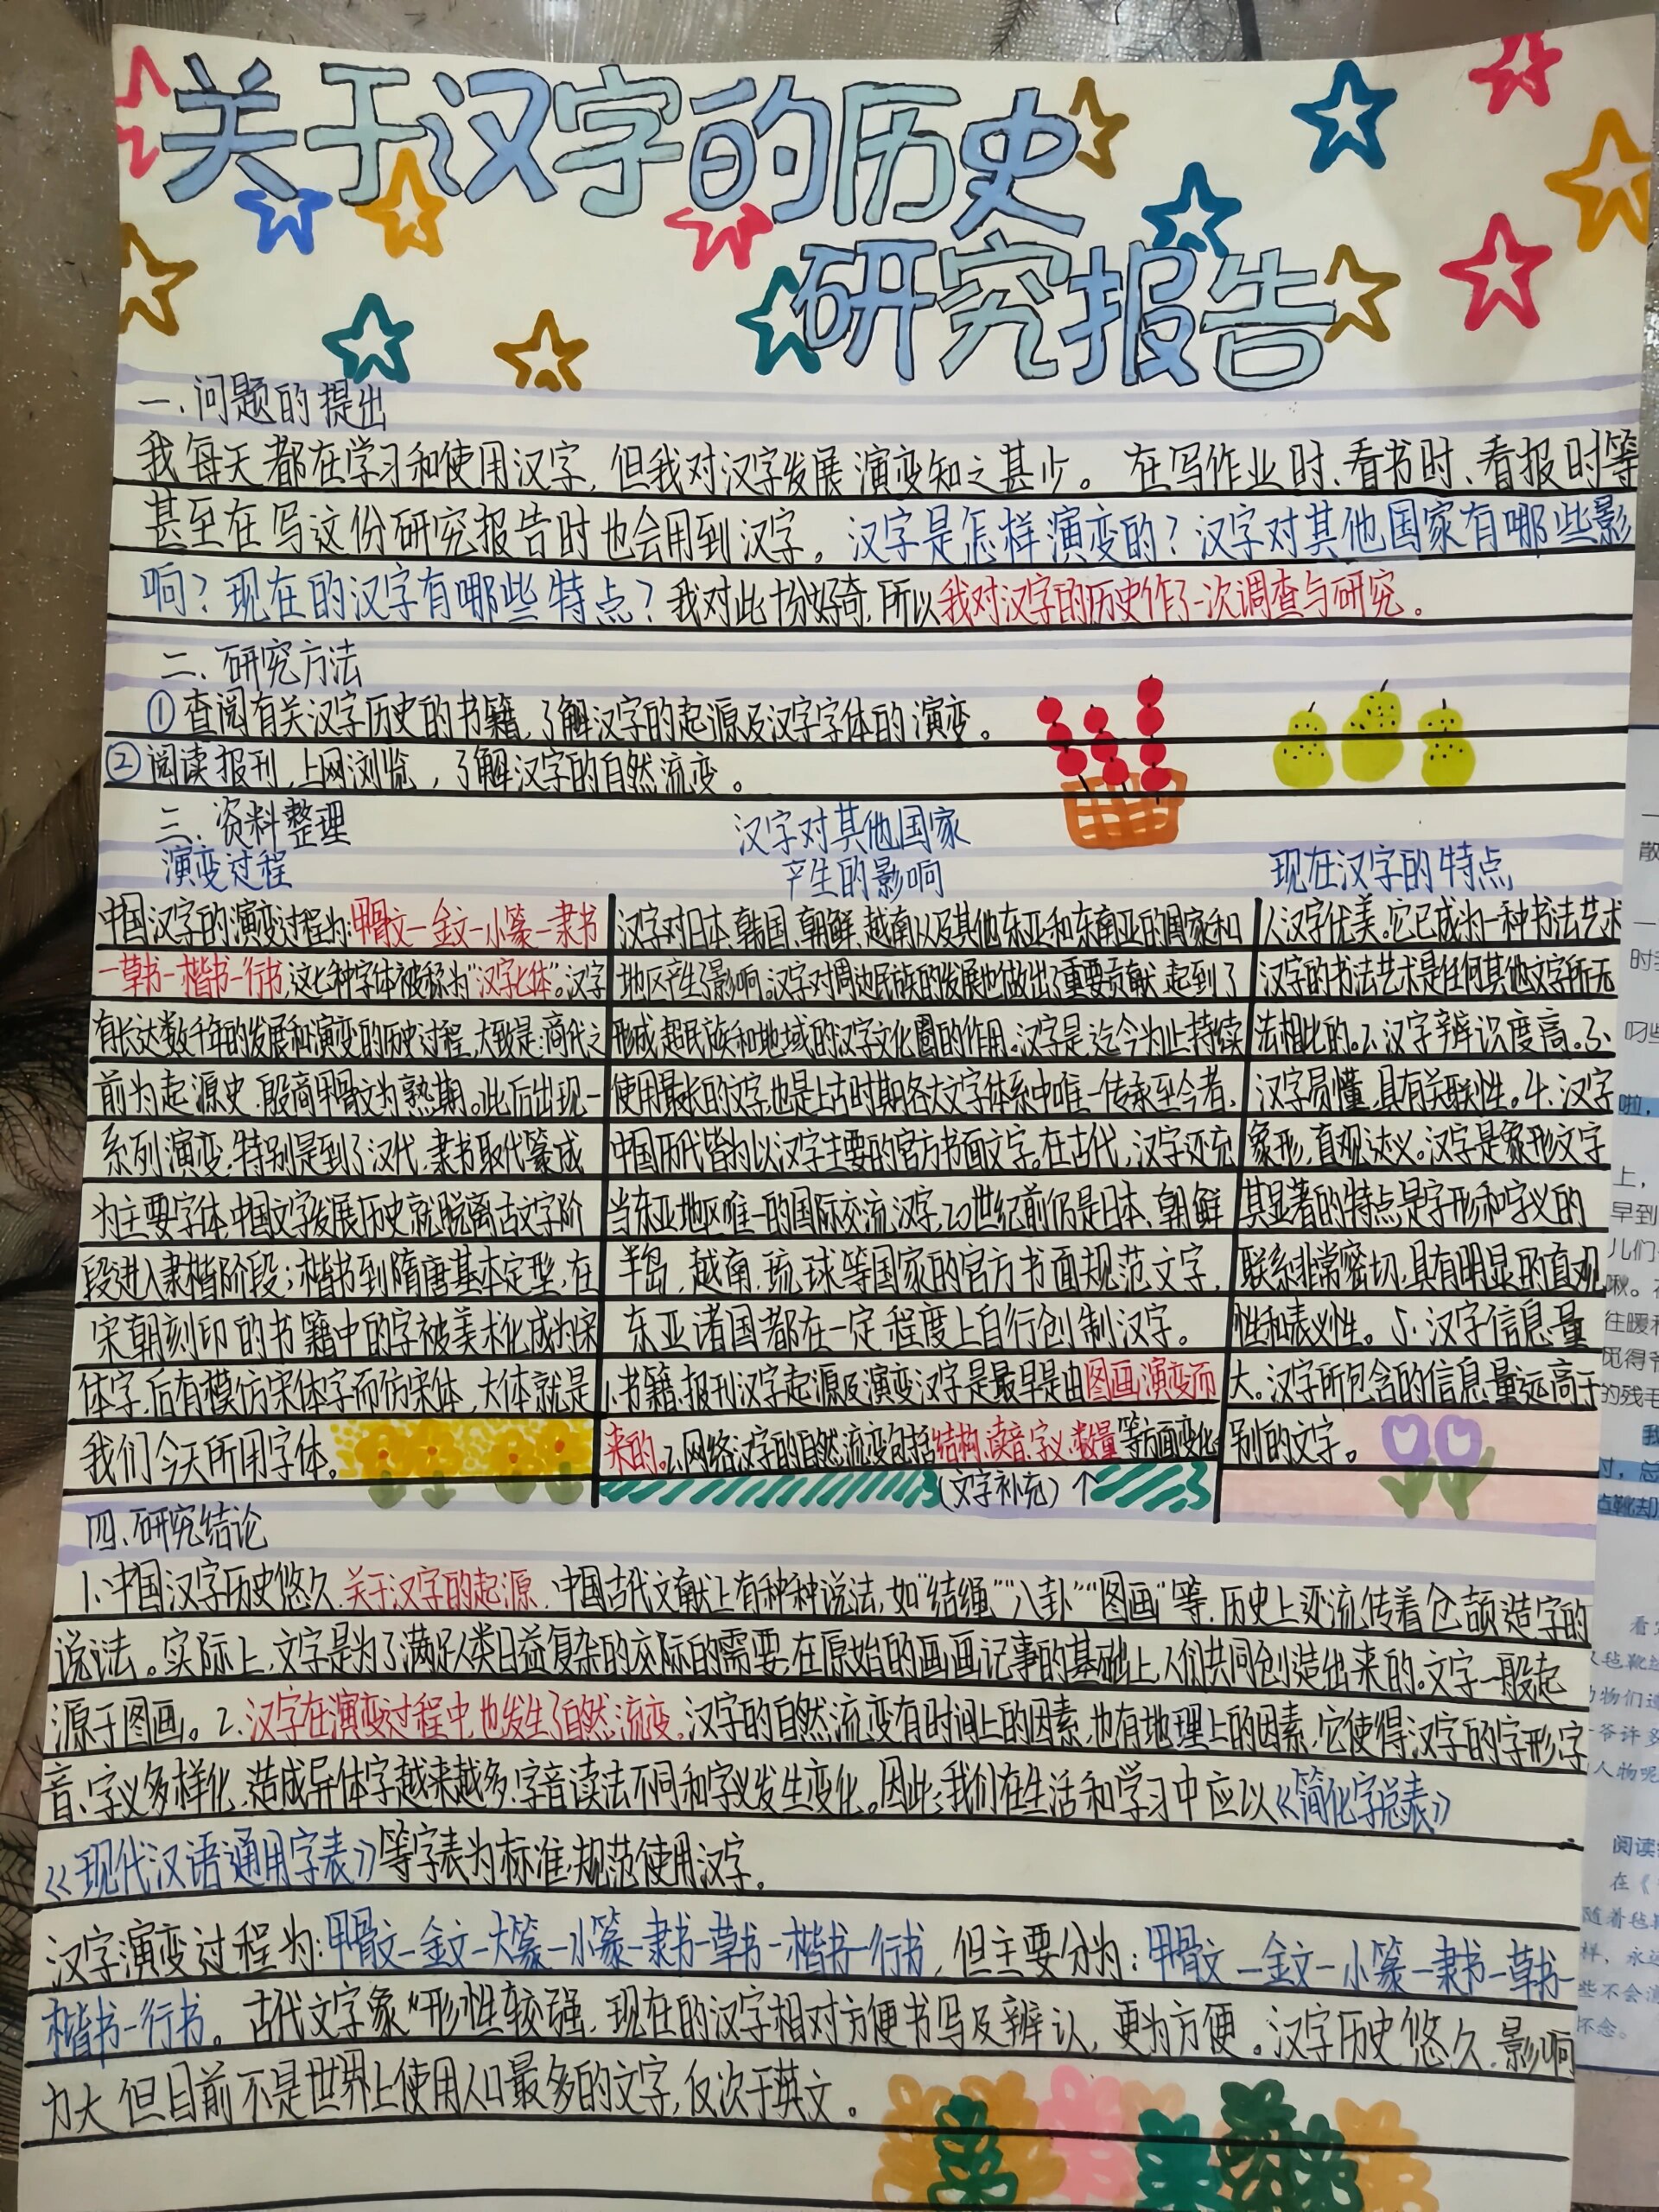 关于汉字的历史
研究报告
一、问题的提出
我每天都在学习和使用汉字，但我对汉字发展演变知之甚少。在写作业时、看书时、看报时等
甚至在写这份研究报告时也会用到汉字。汉字是怎样演变的？汉字对其他国家有哪些影
响？现在的汉字有哪些特点？我对此十分好奇，所以我对汉字的历史作了一次调查与研究。
二、研究方法
①查阅有关汉字历史的书籍，了解汉字的起源及汉字字体的演变。
②阅读报刊，上网浏览，了解汉字的自然流变。
三、资料整理
演变过程
中国汉字的演变过程为：甲骨文—金文—小篆—隶书
—草书—楷书—行书，这七种字体被称为“汉字七体”。汉字
有长达数千年的发展和演变的历史过程，大致是：商代之
前为起源史，殷商甲骨文为熟期。此后出现一
系列演变，特别是到了汉代，隶书取代篆成
为主要字体，中国文字发展历史就脱离古文字阶
段进入隶楷阶段；楷书到隋唐基本定型，在
宋朝刻印的书籍中的字被美术化成为宋
体字，后有模仿宋体字而仿宋体，大体就是
我们今天所用字体。
汉字对其他国家
产生的影响
汉字对日本、韩国、朝鲜、越南以及其他东亚和东南亚的国家和
地区产生了影响。汉字对周边民族的发展也做出了重要贡献，起到了
形成超民族和地域的汉字文化圈的作用。汉字是迄今为止持续
使用最长的文字，也是上古时期各大文字体系中唯一传承至今者，
中国历代皆为以汉字主要的官方书面文字。在古代，汉字还充
当东亚地区唯一的国际交流汉字，20世纪前仍是日本、朝鲜
半岛，越南，琉球等国家的官方书面规范文字，
东亚诸国都在一定程度上自行创制汉字。
1、书籍、报刊汉字起源及演变汉字是最早是由图画演变而
来的。2、网络汉字的自然流变包括结构、读音、字义、数量等方面变化
（文字补充）↑
现在汉字的特点
1、汉字优美。它已成为一种书法艺术
汉字的书法艺术是任何其他文字所无
法相比的。2、汉字辨识度高。3、
汉字易懂，具有关联性。4、汉字
象形，直观达义。汉字是象形文字
其显著的特点是字形和字义的
联系非常密切，具有明显的直观
性和表义性。5、汉字信息量
大。汉字所包含的信息量远高于
别的文字。
四、研究结论
1、中国汉字历史悠久，关于汉字的起源，中国古代文献上有种种说法，如“结绳”“八卦”“图画”等，历史上还流传着仓颉造字的
说法。实际上，文字是为了满足人类日益复杂的交际的需要，在原始的画画记事的基础上，人们共同创造出来的。文字一般起
源于图画。2、汉字在演变过程中，也发生了自然流变。汉字的自然流变有时间上的因素，也有地理上的因素，它使得汉字的字形、字
音、字义多样化，造成异体字越来越多，字音读法不同和字义发生变化。因此，我们在生活和学习中应以《简化字总表》
《现代汉语通用字表》等字表为标准，规范使用汉字。
汉字演变过程为：甲骨文—金文—大篆—小篆—隶书—草书—楷书—行书，但主要分为：甲骨文—金文—小篆—隶书—草书—
楷书—行书。古代文字象形性较强，现在的汉字相对方便书写及辨认，更为方便。汉字历史悠久，影响
力大，但目前不是世界上使用人口最多的文字，仅次于英文。